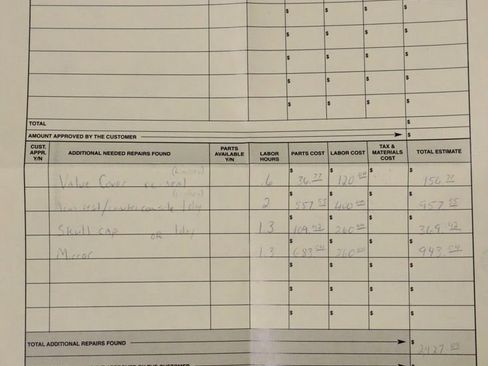 $ $ $ $
$ $ $ $
$ $ $ $
$ $ $ $
$ $ $ $
TOTAL $
AMOUNT APPROVED BY THE CUSTOMER $
CUST. APPR. Y/N ADDITIONAL NEEDED REPAIRS FOUND PARTS AVAILABLE Y/N LABOR HOURS PARTS COST LABOR COST TAX & MATERIALS COST TOTAL ESTIMATE
Valve Cover reseal .6 $ 36.77 $ 120 $ $ 156.77
1day 2 $ 557.55 $ 400 $ $ 957.55
Skull cap 1day 1.3 $ 109.43 $ 260 $ $ 369.43
Mirror 1.3 $ 683.54 $ 260 $ $ 943.54
$ $ $ $
$ $ $ $
$ $ $ $
TOTAL ADDITIONAL REPAIRS FOUND $ 2427